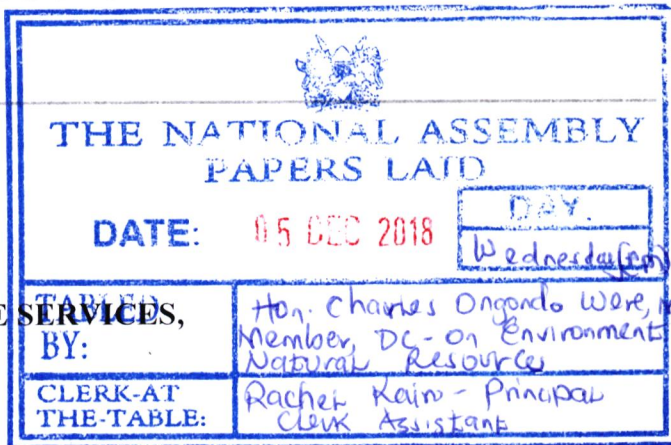 THE NATIONAL ASSEMBLY
PAPERS LAID
DATE: 05 DEC 2018
DAY.
Wednesday (pm)
E SERVICES,
TABLED
BY:
Hon. Charles Ongondo Were,
Member, DC - On Environment
Natural Resource
CLERK-AT
THE-TABLE:
Rachel Kairu - Principal
Clerk Assistant